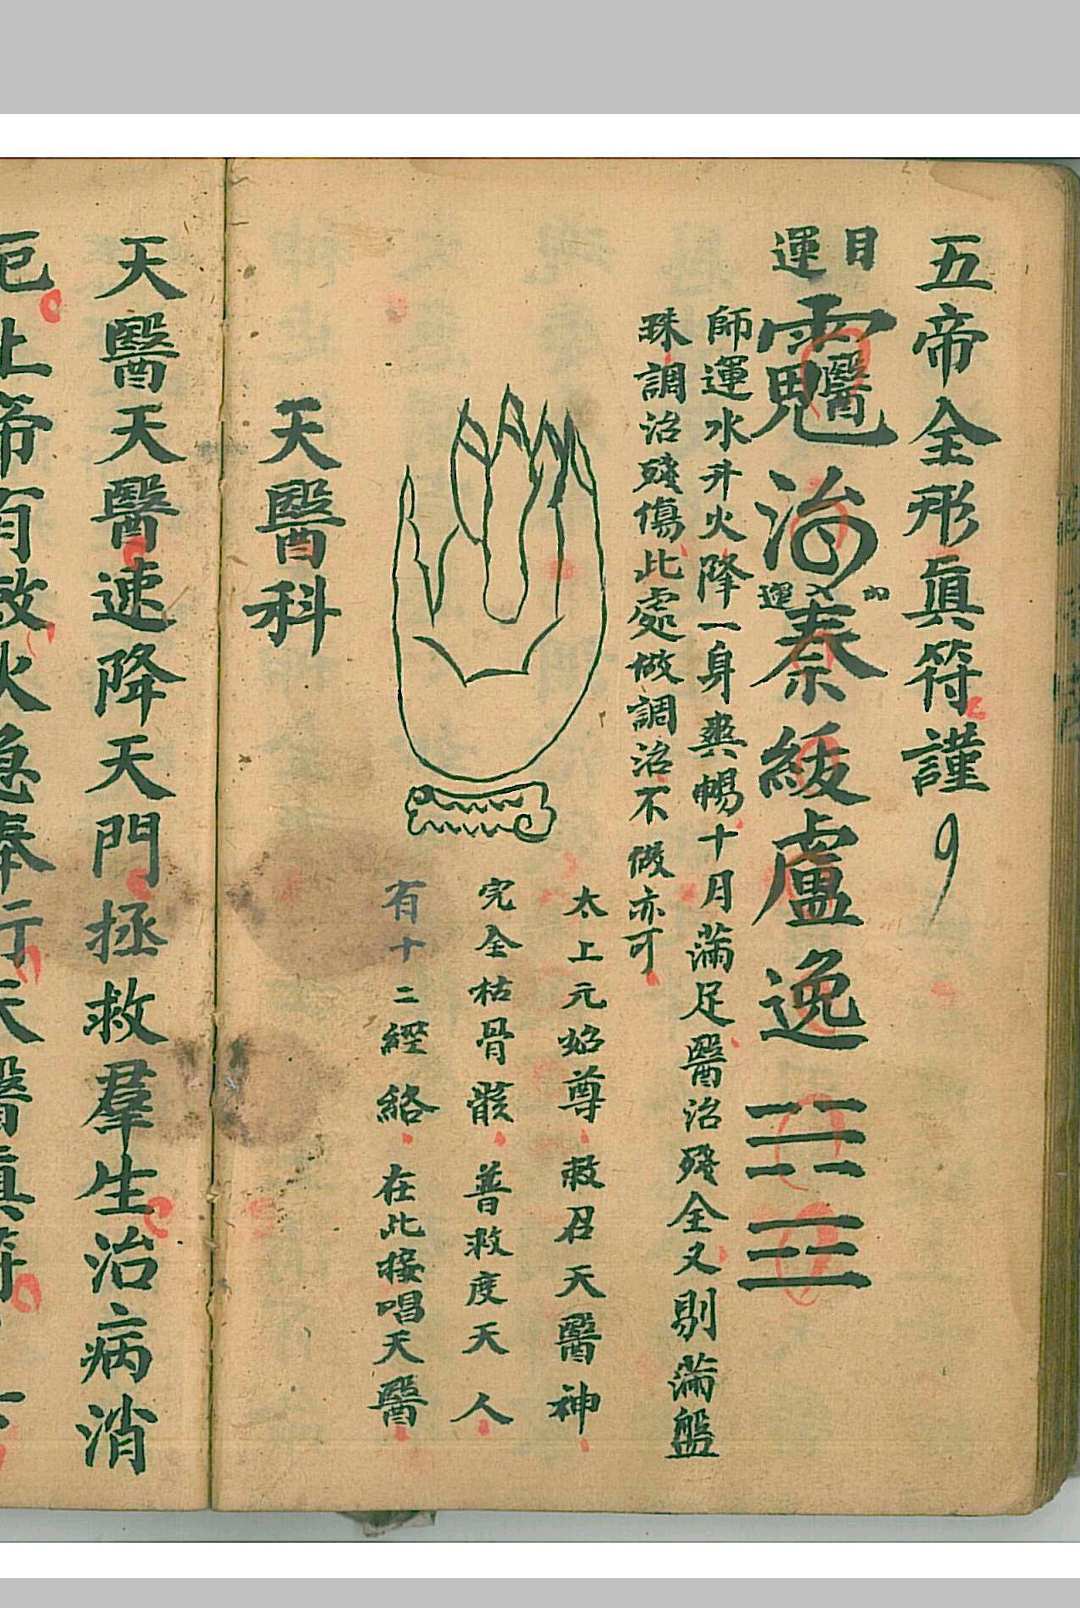 五帝全形眞符謹
日
運
醫治
加
運入
秦緩盧逸
師運水升火降一身爽暢十月滿足醫治殘全又剔滿盤
珠調治殘傷此處做調治不做亦可
太上元始尊敕召天醫神
完全枯骨骸普救度天人
有十二經絡在此接唱天醫
天醫科
天醫天醫速降天門拯救羣生治病消
厄上帝有敕火急奉行天醫眞符